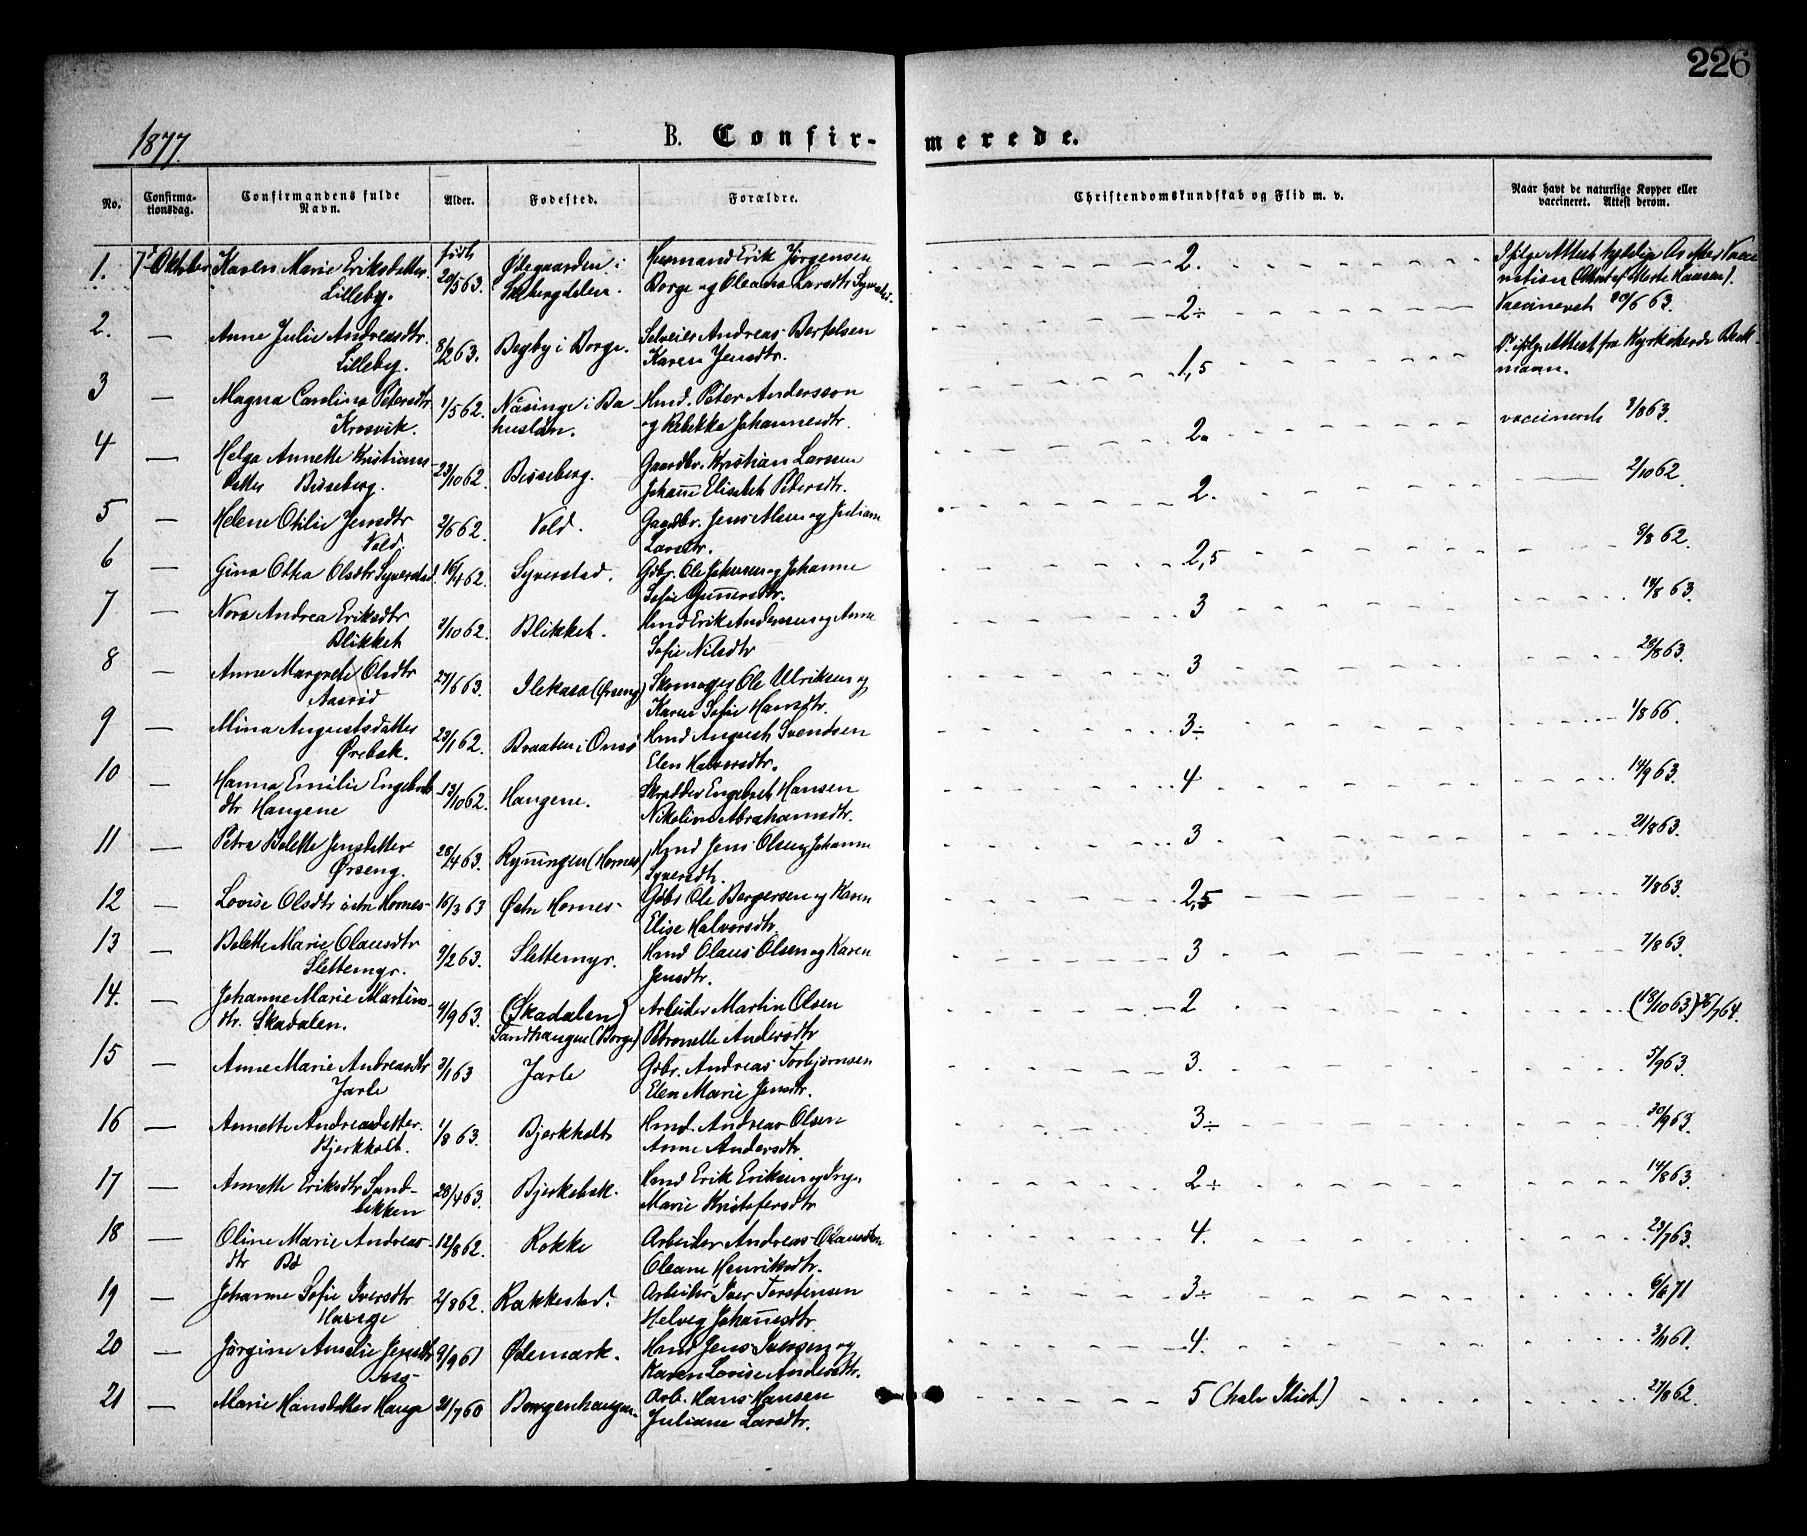 226
1877.
B. Confirmerede.
No. Confirmationsdag. Confirmandens fulde Navn. Alder. Fødested. Forældre. Christendomskundskab og Flid m. v. Naar havt de naturlige Kopper eller vaccineret. Attest derom.
1. 7' Oktober Karen Marie Eriksdatter født Ødegaarden i Husmand Erik Jørgensen 2.
Lilleby. 20/5 63. Skebergdalen. Borge og Oleana Larsdtr
2. — Anne Julie Andreasdtr. 8/2 63. Begby i Borge. Selveier Andreas Bertelsen 2÷ Vaccineret 30/6 63.
Lilleby. Karen Jensdtr.
3 — Magna Carolina Petersdtr 1/5 62. Näsinge i Ba- Hmd. Peter Andersson 1,5 Attest fra Kyrkoherde
Krosvik. huslän. og Rebekka Johannesdtr.
4 — Helga Annette Kristians- 23/10 62. Bisseberg. Gaardbr. Kristian Larsen 2. vaccinerede 3/8 63
datter Bisseberg. Johanne Elisabeth Petersdtr.
5 — Helene Otilie Jensdtr 2/6 62. Vold. Gaardbr. Jens Olsen og Juliane 2. — 2/10 62.
Vold. Larsdtr.
6 — Gina Otha Olsdtr Syverstad. 16/4 62. Syverstad. Gdbr. Ole Johnsen og Johanne 2,5 8/8 62.
Sofie Gunnersdtr.
7 — Nora Andrea Eriksdtr 3/10 62. Blikket. Hmd Erik Andersen og Anne 3 14/8 63.
Blikket Sofie Nilsdtr
8 — Anne Margrete Olsdtr 27/6 63. Ilekasa (Ørseng) Skomager Ole Ulriksen og 3 28/8 63.
Aasrød Karen Sofie Hansdtr.
9 — Mina Augustsdatter 23/1 62. Braaten i Onsø Hmd August Svendsen 3÷ 1/8 66.
Ørebæk. Elen Halvorsdtr.
10 — Hanna Emilie Engebrets- 13/10 62. Haugene. Skrædder Engebret Hansen 4 14/9 63.
dtr Haugene Nikoline Abrahamsdtr.
11 — Petra Bolette Jensdatter 28/4 63. Rynningen (Hornes) Hmd Jens Olsen og Johanne 3 21/8 63.
Ørseng. Syversdtr.
12 — Lovise Olsdtr østre Hornes 16/3 63 Østre Hornes Gdbr Ole Borgersen og Karen 2,5 7/8 63.
Elise Halvorsdtr.
13 — Bolette Marie Olausdtr 9/2 63. Slettemyr. Hmd Olaus Olsen og Karen 3 7/8 63.
Slettemyr. Jensdtr.
14. — Johanne Marie Martins- 4/9 63. (Skadalen) Arbeider Martin Olsen 2 (18/10 63) 26/7 64.
dtr. Skadalen. Sandhaugene (Borge) Petronelle Andersdtr
15 — Anne Marie Andreasdtr 3/1 63 Jarle Gdbr. Andreas Torbjørnsen 3. 5/9 63.
Jarle Elen Marie Jensdtr.
16 — Annette Andreasdatter. 1/8 63. Bjerkholt Hmd. Andreas Olsen 3÷ 30/9 63.
Bjerkholt. Anne Andersdtr.
17 — Annette Eriksdtr Sand- 28/4 63. Bjerkebæk. Hmd Erik Eriksen og 2÷ 14/8 63.
bekken Marie Kristofersdtr
18 — Oline Marie Andreas- 12/8 62. Rokke Arbeider Andreas 4. 23/7 63.
dtr Bø Oleane Henriksdtr.
19 — Johanne Sofie Iversdtr 2/8 62. Rakkestad. Arbeider Iver Torstensen 3÷ 6/6 71
Hauge Helvig Johannesdtr
20 — Jørgine Amalie Jensdtr 9/9 61 Ødemark. Hmd Jens Iversen og 4. 3/11 61.
Karen Lovise Andersdtr.
21 — Marie Hansdatter Hauge 20/7 60 Borgenhaugen. Arb. Hans Hansen 5 (halv Idiot) 27/8 62.
Juliane Larsdtr.